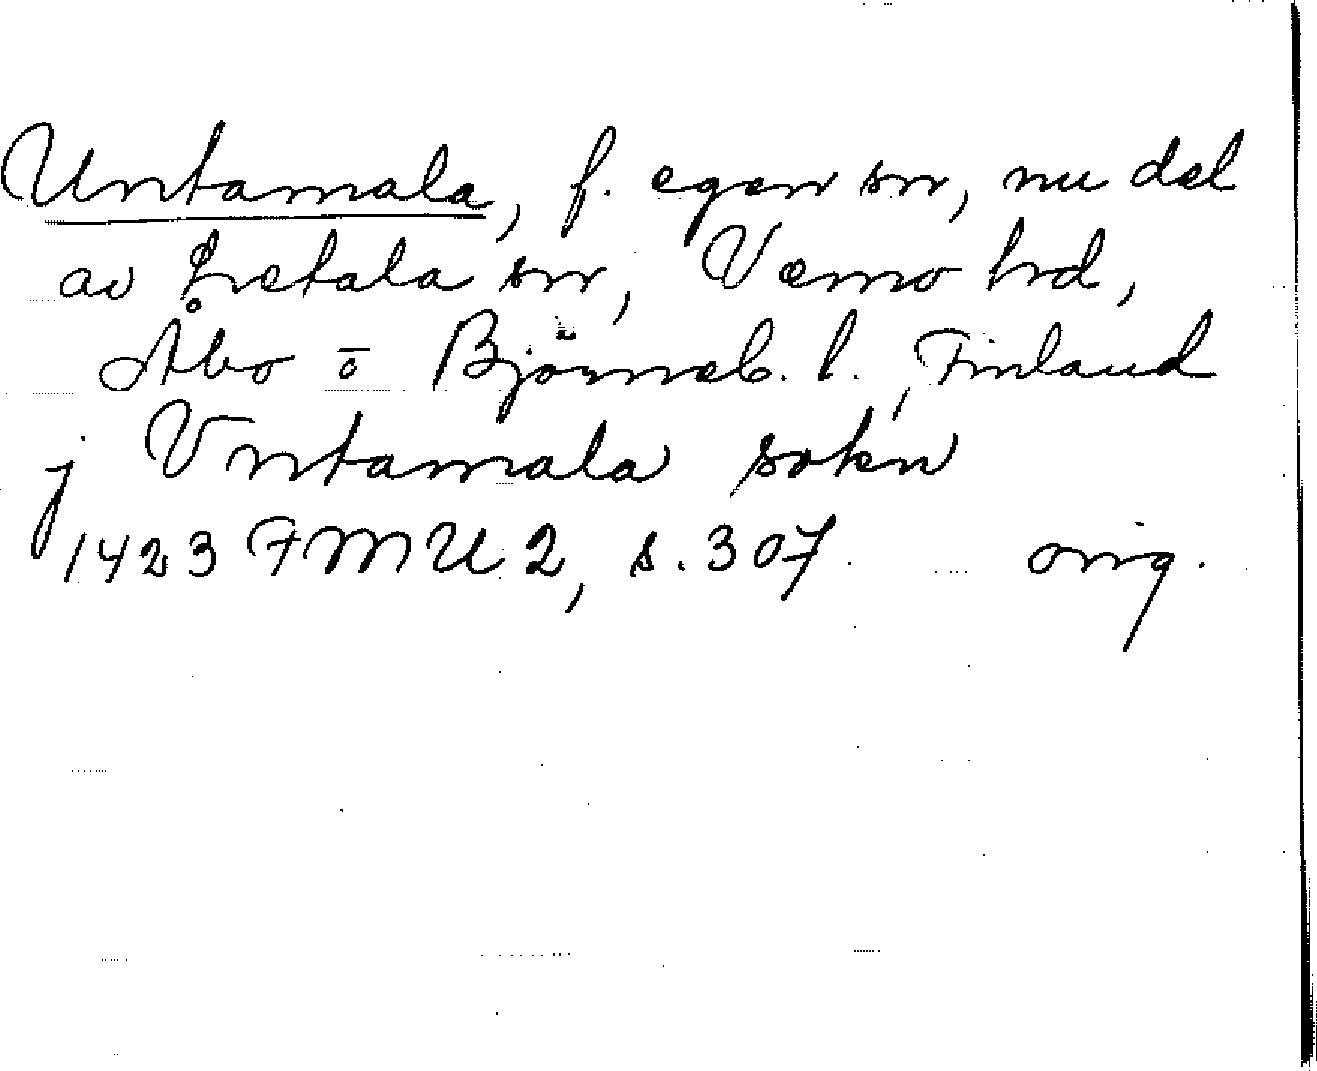 Untamala, f. egen sn, nu del
av Letala sn, Vemo hd,
Åbo o Björneb. l., Finland
j Vntamala sokn
1423 FMU 2, s. 307 orig.